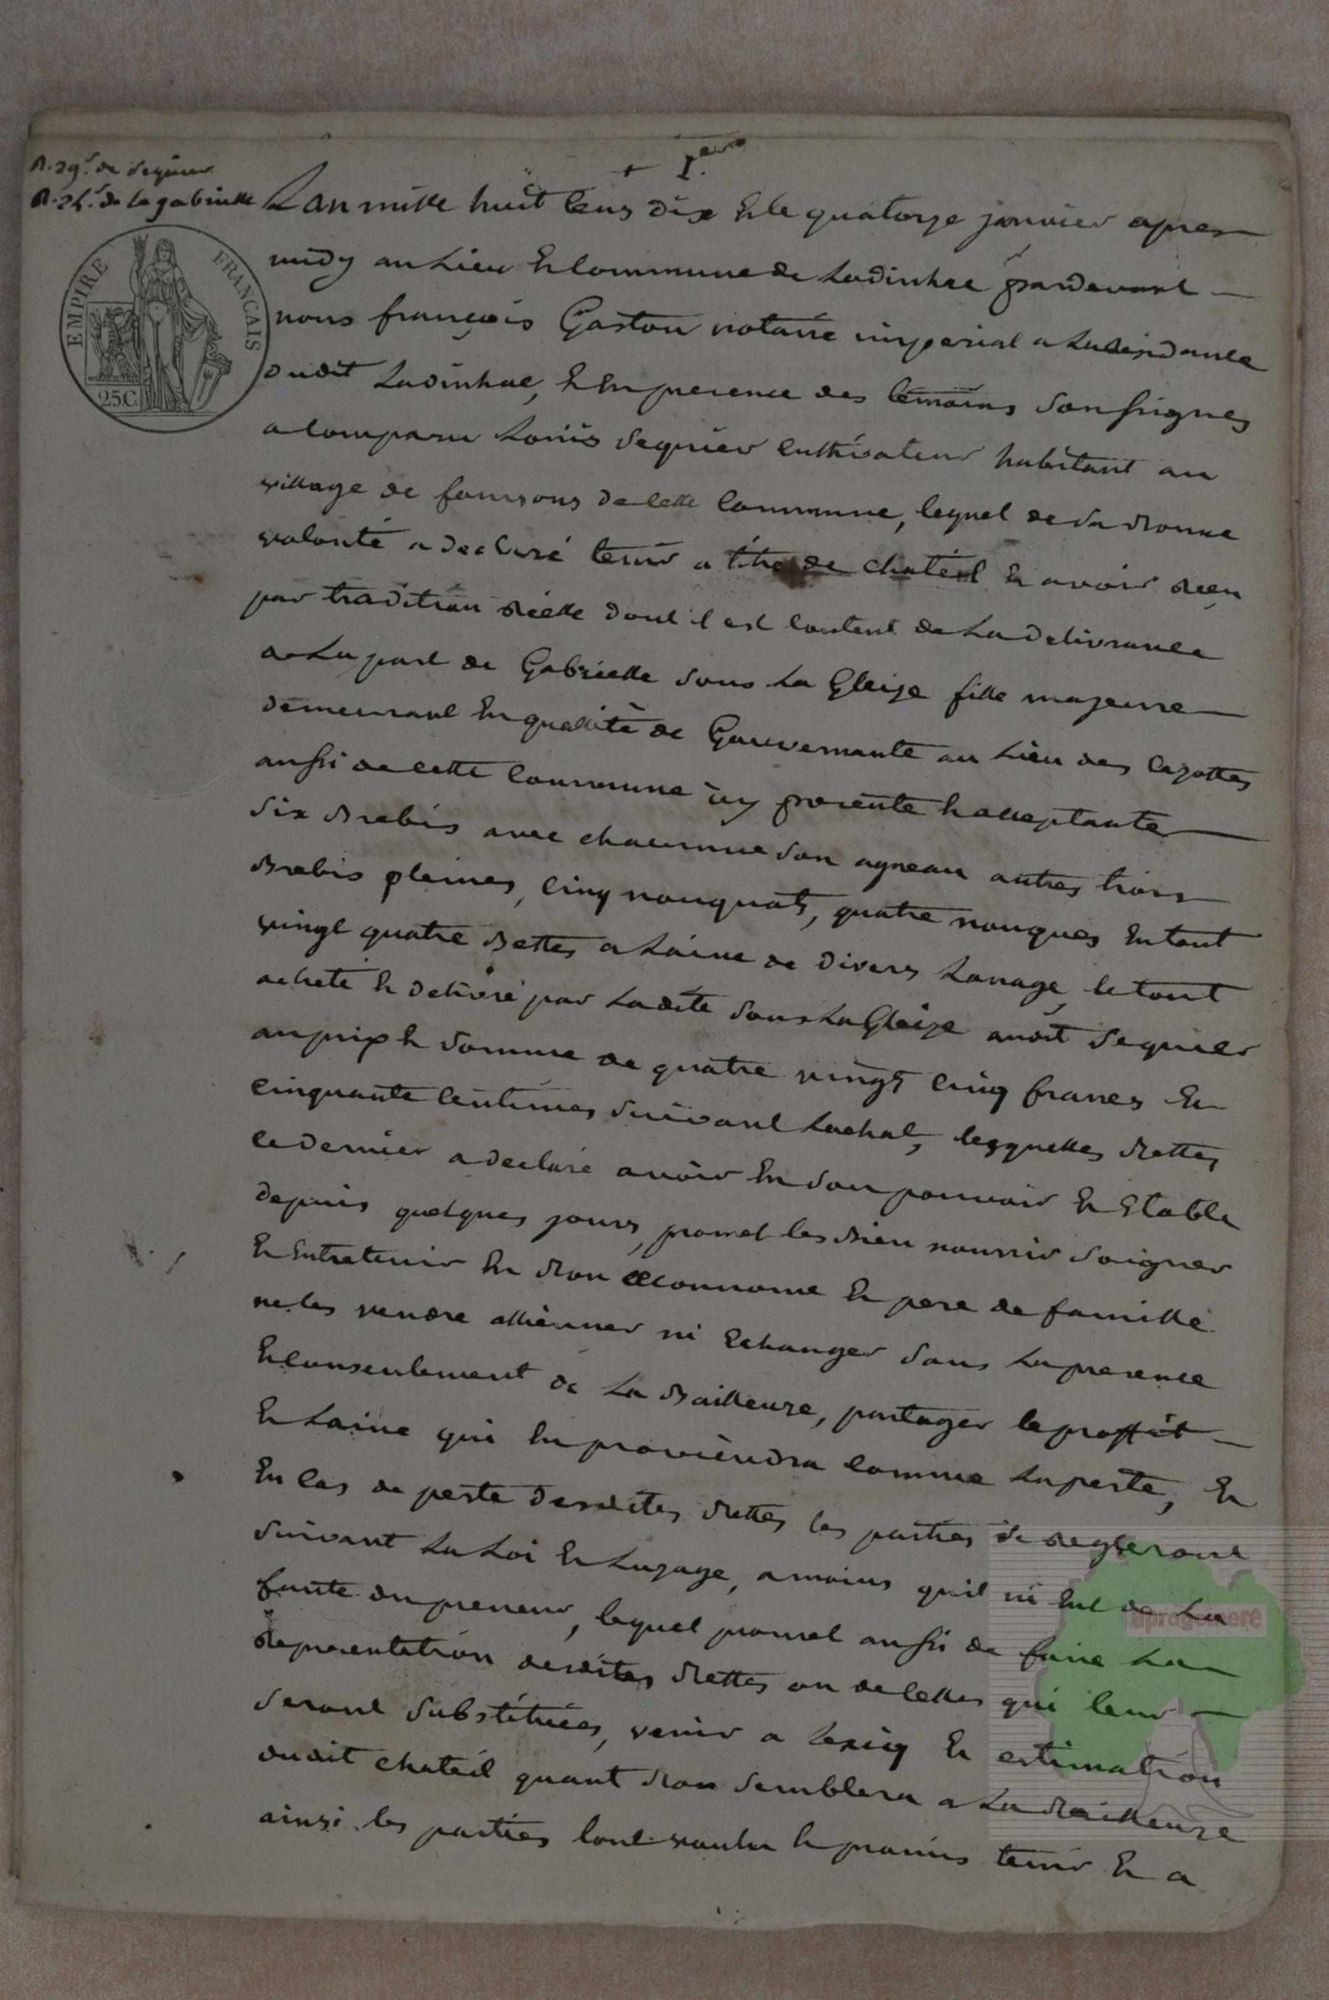 + 1.ere
R. 29.s de Sequier
R. 2f. de la gabrielle
L'an mille huit Cens dix & le quatorze janvier apres
midy au Lieu & Commune de Ladinhac pardevant
nous françois Gaston notaire imperial a La residance
dudit Ladinhac, & En presence des temoins Soussignes
a Comparu Louis Sequier Cultivateur habitant au
village de foursous de Cette Commune, lequel de Sa Bonne
volonté a declaré tenir a titre de chatéil & avoir Reçu
par tradition Réelle dont il est Content de La Delivrance
de La part de Gabrielle Sous La Gleize fille majeure
demeurant En qualité de Gouvernante au Lieu des Cazottes
aussi de cette Commune icy presente & acceptante
Six Brebis avec chacunne Son agneau autres trois
Brebis pleines, Cinq nouquats, quatre nouques En tout
vingt quatre Bettes a Laine de Divers Lanage, le tout
acheté & delivré par Ladite Sous La Gleize audit Sequier
au prix & Somme de quatre vingt Cinq francs &
Cinquante Centimes Suivant Lachat, lesquelles Bettes
Ce dernier a declaré avoir En Son pouvoir & Etable
depuis quelques jours, promet les Bien nourrir Soigner
& Entretenir En Bon œconnome & pere de famille
ne les vendre allienner ni Echanger Sans La presence
& Consentement de La Bailleuze, partager le proffit
& Laine qui En proviendra Comme La perte, &
En Cas de perte desdites Bettes les parties Se Regleront
Suivant La Loi & Luzage, a moins quil ni Eut de La
faute du preneur, lequel promet aussi de faire La
Representation desdites Bettes ou de Celles qui leur
Seront Substituées, venir a Lexicq & estimation
dudit chatéil quant Bon Semblera a La Bailleuze
ainsi les parties Lont voulu & promis tenir & a
EMPIRE FRANÇAIS
25C.
aprogemere